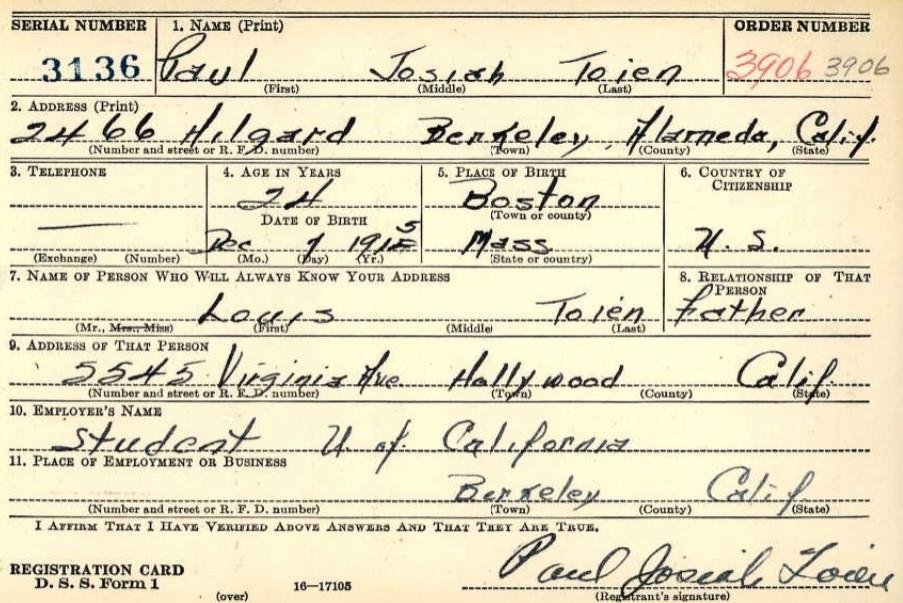 SERIAL NUMBER 1. NAME (Print) ORDER NUMBER
3136 Paul Josiah Toien 3906 3906
(First) (Middle) (Last)
2. ADDRESS (Print)
2466 Hilgard Berkeley, Alameda, Calif.
(Number and street or R. F. D. number) (Town) (County) (State)
3. TELEPHONE 4. AGE IN YEARS 5. PLACE OF BIRTH 6. COUNTRY OF CITIZENSHIP
24 Boston
DATE OF BIRTH (Town or county)
— Dec 7 1915 Mass U. S.
(Exchange) (Number) (Mo.) (Day) (Yr.) (State or country)
7. NAME OF PERSON WHO WILL ALWAYS KNOW YOUR ADDRESS 8. RELATIONSHIP OF THAT PERSON
Louis Toien Father
(Mr., Mrs., Miss) (First) (Middle) (Last)
9. ADDRESS OF THAT PERSON
5545 Virginia Ave Hollywood Calif.
(Number and street or R. F. D. number) (Town) (County) (State)
10. EMPLOYER'S NAME
Student U of California
11. PLACE OF EMPLOYMENT OR BUSINESS
Berkeley Calif
(Number and street or R. F. D. number) (Town) (County) (State)
I AFFIRM THAT I HAVE VERIFIED ABOVE ANSWERS AND THAT THEY ARE TRUE.
Paul Josiah Toien
REGISTRATION CARD
D. S. S. Form 1 (over) 16—17105 (Registrant's signature)